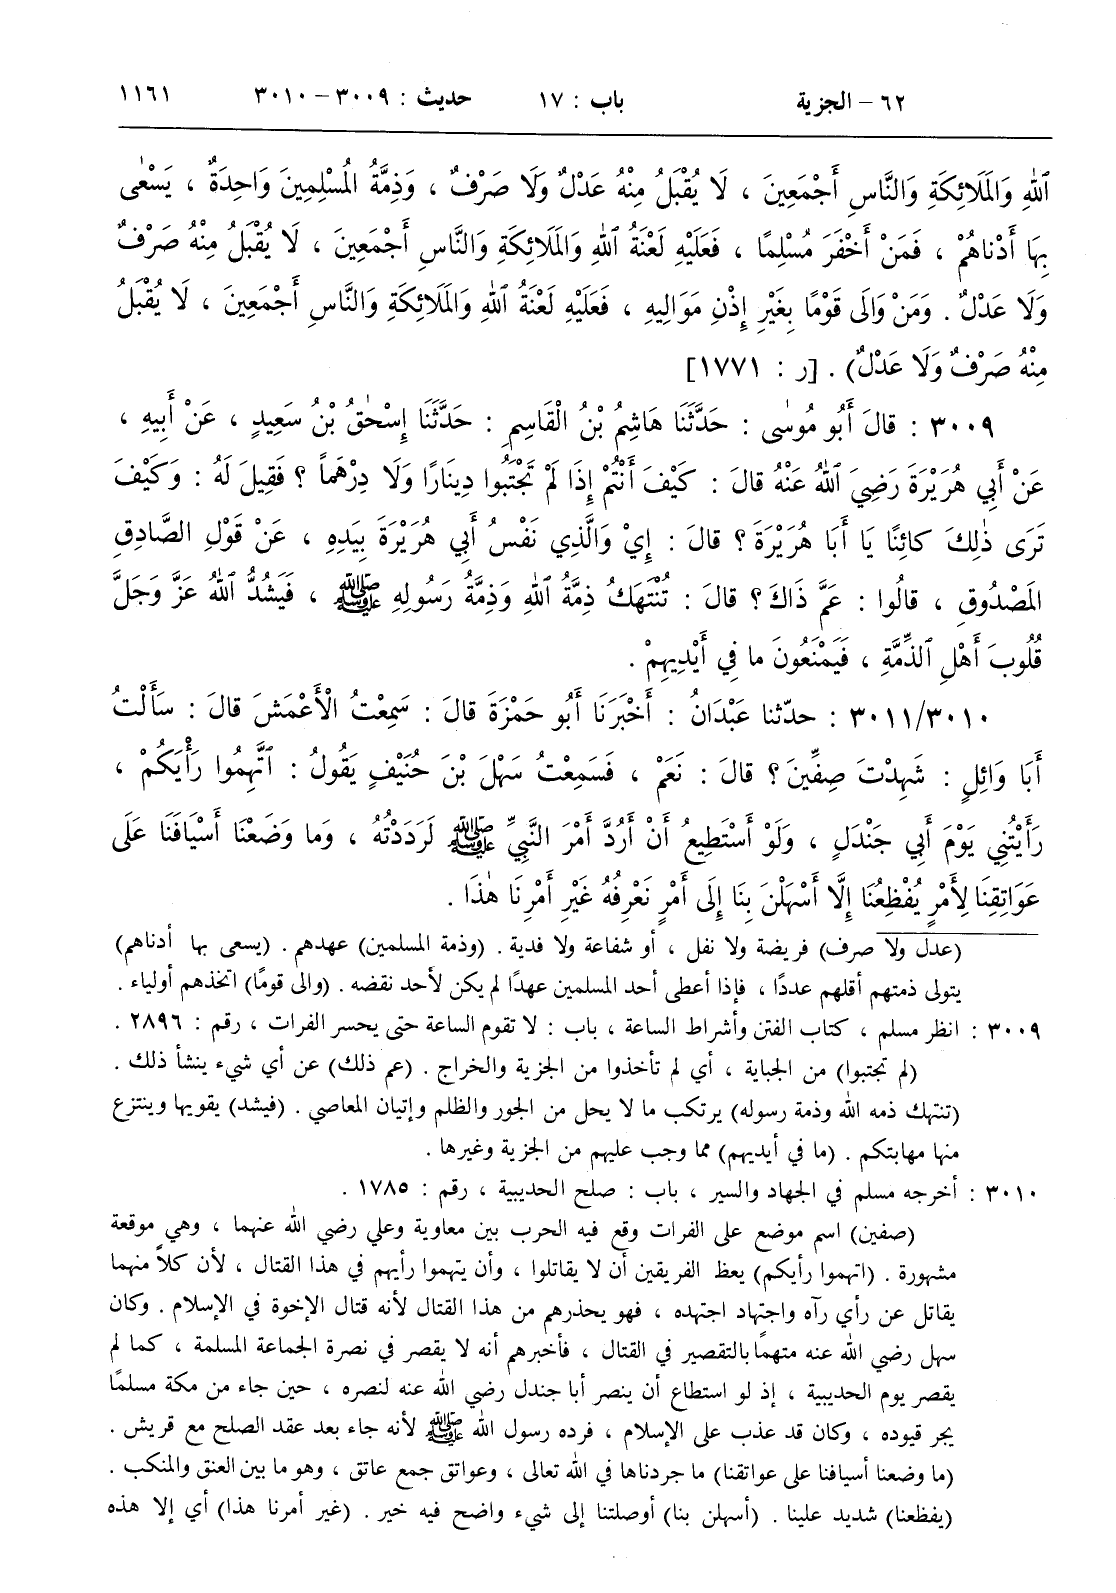 ٦٢ – الجزية باب : ١٧ حديث : ٣٠٠٩ – ٣٠١٠ ١١٦١
ٱللهِ وَالْمَلَائِكَةِ وَالنَّاسِ أَجْمَعِينَ ، لَا يُقْبَلُ مِنْهُ عَدْلٌ وَلَا صَرْفٌ ، وَذِمَّةُ الْمُسْلِمِينَ وَاحِدَةٌ ، يَسْعٰى
بِهَا أَدْنَاهُمْ ، فَمَنْ أَخْفَرَ مُسْلِمًا ، فَعَلَيْهِ لَعْنَةُ ٱللهِ وَالْمَلَائِكَةِ وَالنَّاسِ أَجْمَعِينَ ، لَا يُقْبَلُ مِنْهُ صَرْفٌ
وَلَا عَدْلٌ . وَمَنْ وَالَى قَوْمًا بِغَيْرِ إِذْنِ مَوَالِيهِ ، فَعَلَيْهِ لَعْنَةُ ٱللهِ وَالْمَلَائِكَةِ وَالنَّاسِ أَجْمَعِينَ ، لَا يُقْبَلُ
مِنْهُ صَرْفٌ وَلَا عَدْلٌ) . [ر : ١٧٧١]
٣٠٠٩ : قالَ أَبُو مُوسٰى : حَدَّثَنَا هَاشِمُ بْنُ الْقَاسِمِ : حَدَّثَنَا إِسْحٰقُ بْنُ سَعِيدٍ ، عَنْ أَبِيهِ ،
عَنْ أَبِي هُرَيْرَةَ رَضِيَ ٱللهُ عَنْهُ قالَ : كَيْفَ أَنْتُمْ إِذَا لَمْ تَجْتَبُوا دِينَارًا وَلَا دِرْهَماً ؟ فَقِيلَ لَهُ : وَكَيْفَ
تَرَى ذٰلِكَ كائِنًا يَا أَبَا هُرَيْرَةَ ؟ قالَ : إِيْ وَالَّذِي نَفْسُ أَبِي هُرَيْرَةَ بِيَدِهِ ، عَنْ قَوْلِ الصَّادِقِ
الْمَصْدُوقِ ، قالُوا : عَمَّ ذَاكَ ؟ قالَ : تُنْتَهَكُ ذِمَّةُ ٱللهِ وَذِمَّةُ رَسُولِهِ ﷺ ، فَيَشُدُّ ٱللهُ عَزَّ وَجَلَّ
قُلُوبَ أَهْلِ ٱلذِّمَّةِ ، فَيَمْنَعُونَ ما فِي أَيْدِيهِمْ .
٣٠١١/٣٠١٠ : حدّثنا عَبْدَانُ : أَخْبَرَنَا أَبُو حَمْزَةَ قالَ : سَمِعْتُ الْأَعْمَشَ قالَ : سَأَلْتُ
أَبَا وَائِلٍ : شَهِدْتَ صِفِّينَ ؟ قالَ : نَعَمْ ، فَسَمِعْتُ سَهْلَ بْنَ حُنَيْفٍ يَقُولُ : ٱتَّهِمُوا رَأْيَكُمْ ،
رَأَيْتُنِي يَوْمَ أَبِي جَنْدَلٍ ، وَلَوْ أَسْتَطِيعُ أَنْ أَرُدَّ أَمْرَ النَّبِيِّ ﷺ لَرَدَدْتُهُ ، وَما وَضَعْنَا أَسْيَافَنَا عَلَى
عَوَاتِقِنَا لِأَمْرٍ يُفْظِعُنَا إِلَّا أَسْهَلْنَ بِنَا إِلَى أَمْرٍ نَعْرِفُهُ غَيْرِ أَمْرِنَا هٰذَا .
(عدل ولا صرف) فريضة ولا نفل ، أو شفاعة ولا فدية . (وذمة المسلمين) عهدهم . (يسعى بها أدناهم)
يتولى ذمتهم أقلهم عددًا ، فإذا أعطى أحد المسلمين عهدًا لم يكن لأحد نقضه . (والى قومًا) اتخذهم أولياء .
٣٠٠٩ : انظر مسلم ، كتاب الفتن وأشراط الساعة ، باب : لا تقوم الساعة حتى يحسر الفرات ، رقم : ٢٨٩٦ .
(لم تجتبوا) من الجباية ، أي لم تأخذوا من الجزية والخراج . (عم ذلك) عن أي شيء ينشأ ذلك .
(تنتهك ذمه الله وذمة رسوله) يرتكب ما لا يحل من الجور والظلم وإتيان المعاصي . (فيشد) يقويها وينتزع
منها مهابتكم . (ما في أيديهم) مما وجب عليهم من الجزية وغيرها .
٣٠١٠ : أخرجه مسلم في الجهاد والسير ، باب : صلح الحديبية ، رقم : ١٧٨٥ .
(صفين) اسم موضع على الفرات وقع فيه الحرب بين معاوية وعلي رضي الله عنهما ، وهي موقعة
مشهورة . (اتهموا رأيكم) يعظ الفريقين أن لا يقاتلوا ، وأن يتهموا رأيهم في هذا القتال ، لأن كلاً منهما
يقاتل عن رأي رآه واجتهاد اجتهده ، فهو يحذرهم من هذا القتال لأنه قتال الإخوة في الإسلام . وكان
سهل رضي الله عنه متهمًا بالتقصير في القتال ، فأخبرهم أنه لا يقصر في نصرة الجماعة المسلمة ، كما لم
يقصر يوم الحديبية ، إذ لو استطاع أن ينصر أبا جندل رضي الله عنه لنصره ، حين جاء من مكة مسلمًا
يجر قيوده ، وكان قد عذب على الإسلام ، فرده رسول الله ﷺ لأنه جاء بعد عقد الصلح مع قريش .
(ما وضعنا أسيافنا على عواتقنا) ما جردناها في الله تعالى ، وعواتق جمع عاتق ، وهو ما بين العنق والمنكب .
(يفظعنا) شديد علينا . (أسهلن بنا) أوصلتنا إلى شيء واضح فيه خير . (غير أمرنا هذا) أي إلا هذه